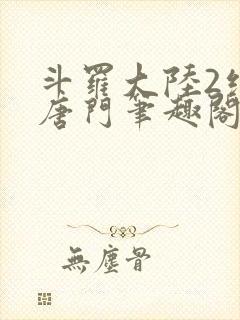 斗羅大陸2絕
唐門筆趣閣
無塵骨